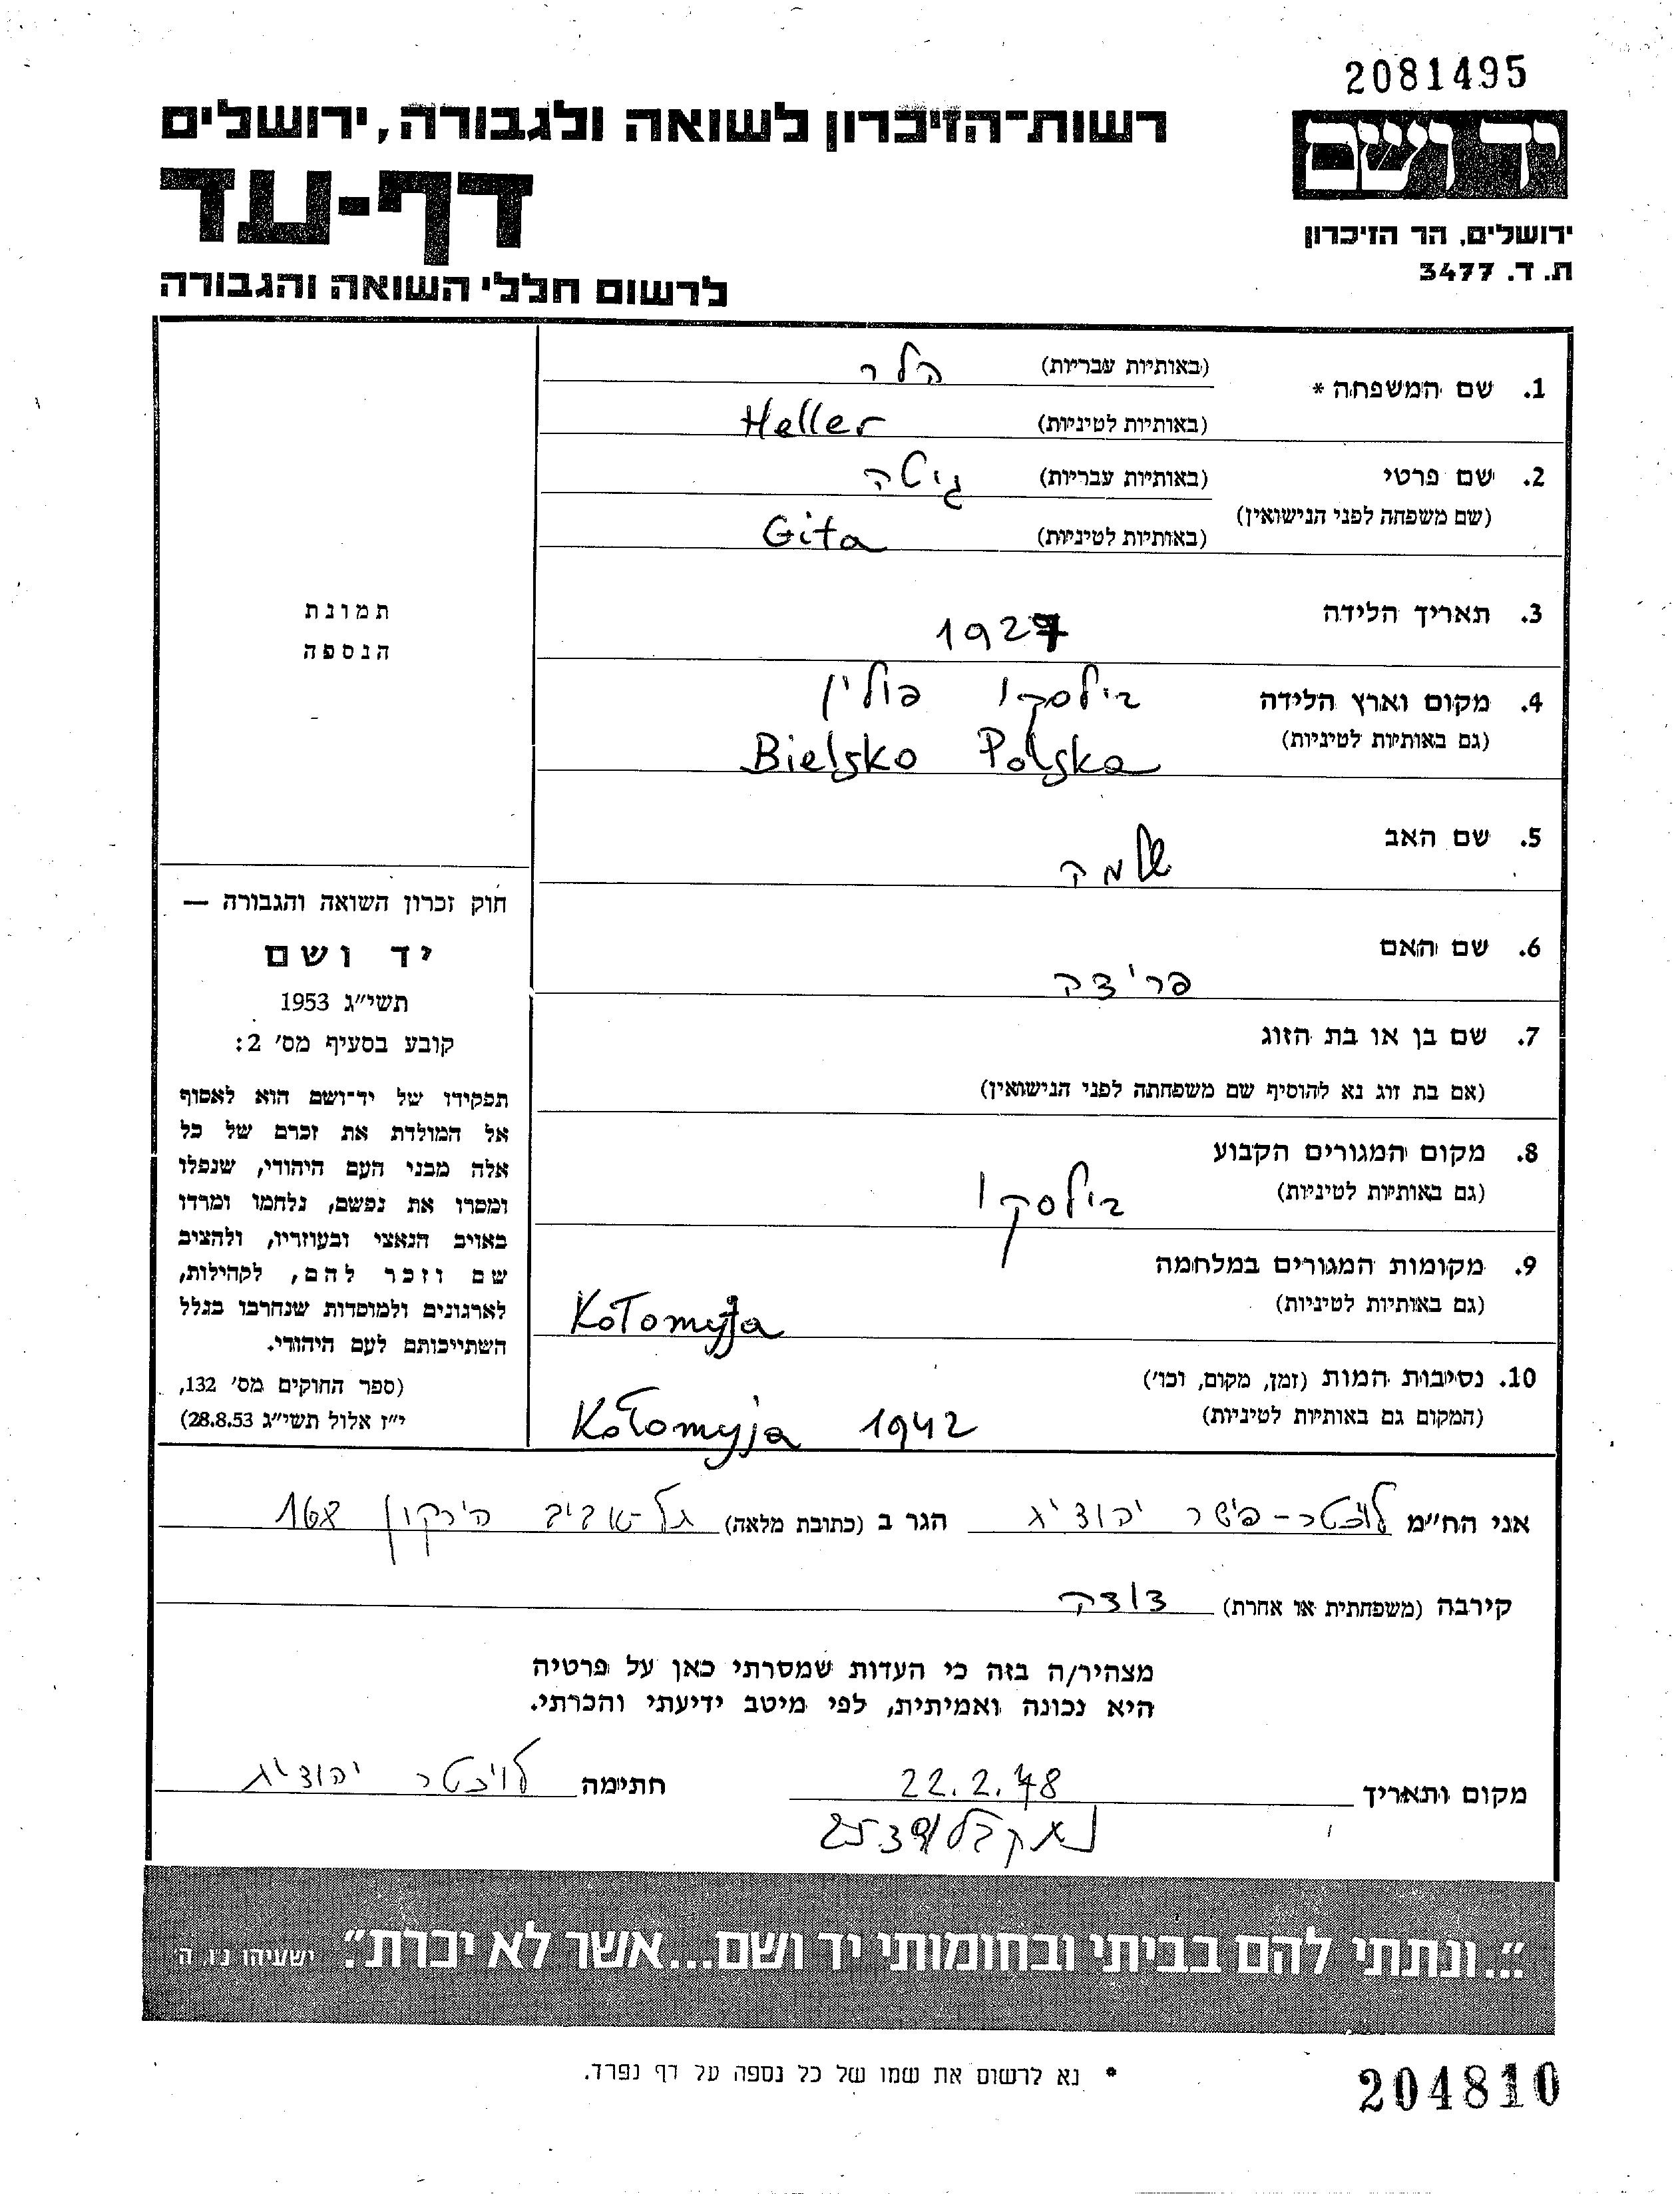 2081495
יד ושם
רשות־הזיכרון לשואה ולגבורה, ירושלים
דף-עד
ירושלים, הר הזיכרון
ת. ד. 3477
לרשום חללי השואה והגבורה
1. שם המשפחה *
(באותיות עבריות) הלר
(באותיות לטיניות) Heller
2. שם פרטי
(שם משפחה לפני הנישואין)
(באותיות עבריות) גיטה
(באותיות לטיניות) Gita
3. תאריך הלידה 1927
4. מקום וארץ הלידה בילסקו פולין
(גם באותיות לטיניות) Bielsko Polska
5. שם האב שלמה
6. שם האם פרידה
7. שם בן או בת הזוג
(אם בת זוג נא להוסיף שם משפחתה לפני הנישואין)
8. מקום המגורים הקבוע
(גם באותיות לטיניות) בילסקו
9. מקומות המגורים במלחמה
(גם באותיות לטיניות) Kołomyja
10. נסיבות המות (זמן, מקום, וכו')
(המקום גם באותיות לטיניות) Kołomyja 1942
תמונת
הנספה
חוק זכרון השואה והגבורה —
יד ושם
תשי"ג 1953
קובע בסעיף מס' 2:
תפקידו של יד־ושם הוא לאסוף
אל המולדת את זכרם של כל
אלה מבני העם היהודי, שנפלו
ומסרו את נפשם, נלחמו ומרדו
באויב הנאצי ובעוזריו, ולהציב
שם וזכר להם, לקהילות,
לארגונים ולמוסדות שנחרבו בגלל
השתייכותם לעם היהודי.
(ספר החוקים מס' 132,
י"ז אלול תשי"ג 28.8.53)
אני הח"מ פישר יהודית הגר ב (כתובת מלאה) תל-אביב הירקון 168
קירבה (משפחתית או אחרת) דודה
מצהיר/ה בזה כי העדות שמסרתי כאן על פרטיה
היא נכונה ואמיתית, לפי מיטב ידיעתי והכרתי.
מקום ותאריך 22.2.78 חתימה יהודית
"...ונתתי להם בביתי ובחומותי יד ושם...אשר לא יכרת". ישעיהו נ"ו, ה'
* נא לרשום את שמו של כל נספה על דף נפרד.
204810